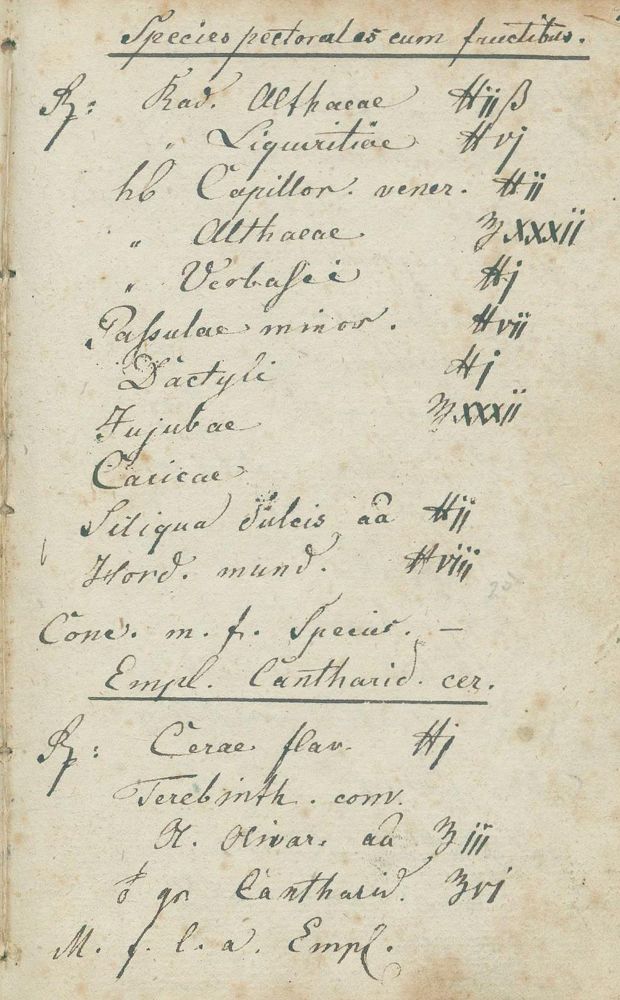 Species pectorales cum fructibus.
℞: Rad. Althaeae ℔ijß
„ Liquiritiae ℔vj
hb Capillor. vener. ℔ij
„ Althaeae ℥xxxij
„ Verbasci ℔j
Passulae minor. ℔vij
Dactyli ℔j
Jujubae ℥xxxij
Caricae
Siliqua dulcis aa ℔ij
Hord. mund. ℔viij
Conc. m. f. Species. —
Empl. Cantharid. cer.
℞: Cerae flav. ℔j
Terebinth. com.
Ol. Olivar. aa ℥iij
gr Cantharid. ℥vj
M. f. l. a. Empl.